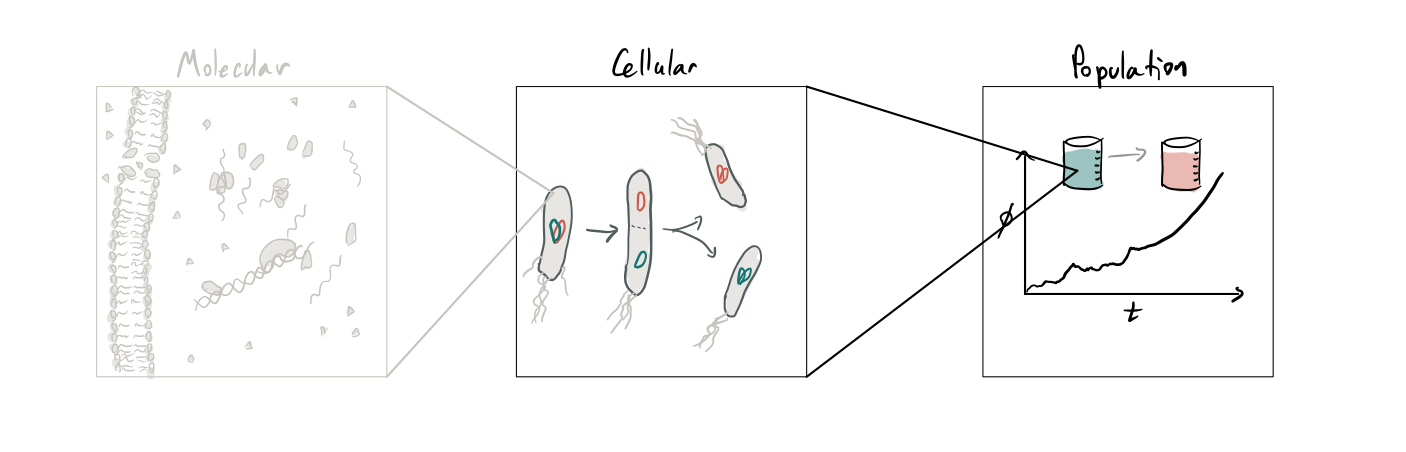 Molecular
Cellular
Population
ϕ
t